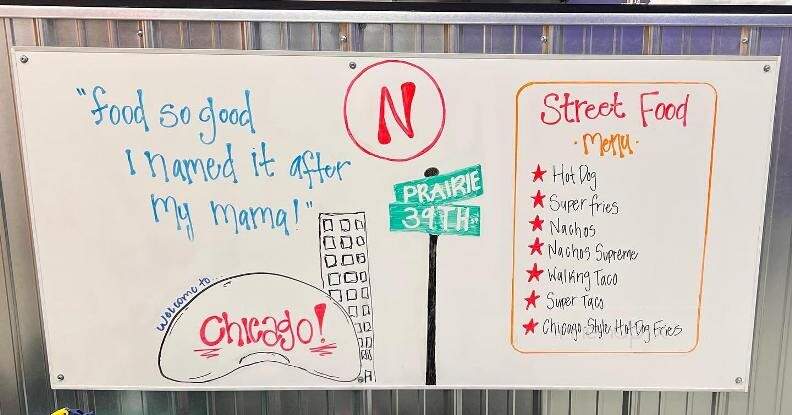 "food so good
I named it after
my mama!"
N
PRAIRIE
39TH ST
Welcome to...
Chicago!
Street Food
Menu
Hot Dog
Super fries
Nachos
Nachos Supreme
Walking Taco
Super Taco
Chicago Style Hot Dog Fries